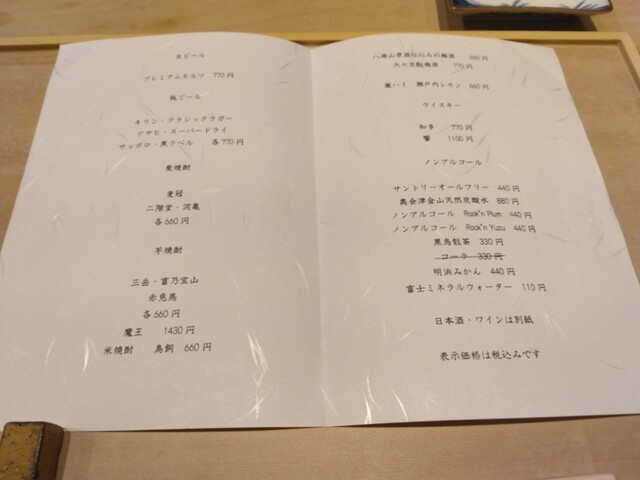 生ビール
プレミアムモルツ 770円
瓶ビール
キリン・クラシックラガー
アサヒ・スーパードライ
サッポロ・黒ラベル 各770円
麦焼酎
麦冠
二階堂・泥亀
各660円
芋焼酎
三岳・富乃宝山
赤兎馬
各660円
魔王 1430円
米焼酎 鳥飼 660円
八海山原酒仕込みの梅酒 660円
大七生酛梅酒 770円
ハイ 瀬戸内レモン 660円
ウイスキー
知多 770円
響 1100円
ノンアルコール
サントリーオールフリー 440円
奥会津金山天然炭酸水 880円
ノンアルコール Rock'n Plum 440円
ノンアルコール Rock'n Yuzu 440円
黒烏龍茶 330円
コーラ 330円
明浜みかん 440円
富士ミネラルウォーター 110円
日本酒・ワインは別紙
表示価格は税込みです